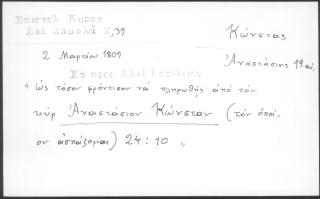 Επιστολ Κοραη
Εκδ Δαμαλᾶ 2,39
Κώνστας
Ἀναστάσιος 19 αἰ.
2 Μαρτίου 1809
Επ προς Αλεξ Βασιλειου
" Ὡς τόσον φρόντισον νὰ πληρωθῇς ἀπὸ τὸν
κὺρ Ἀναστάσιον Κώνσταν (τὸν ὁποῖ-
ον ἀσπάζομαι) 24:10 "